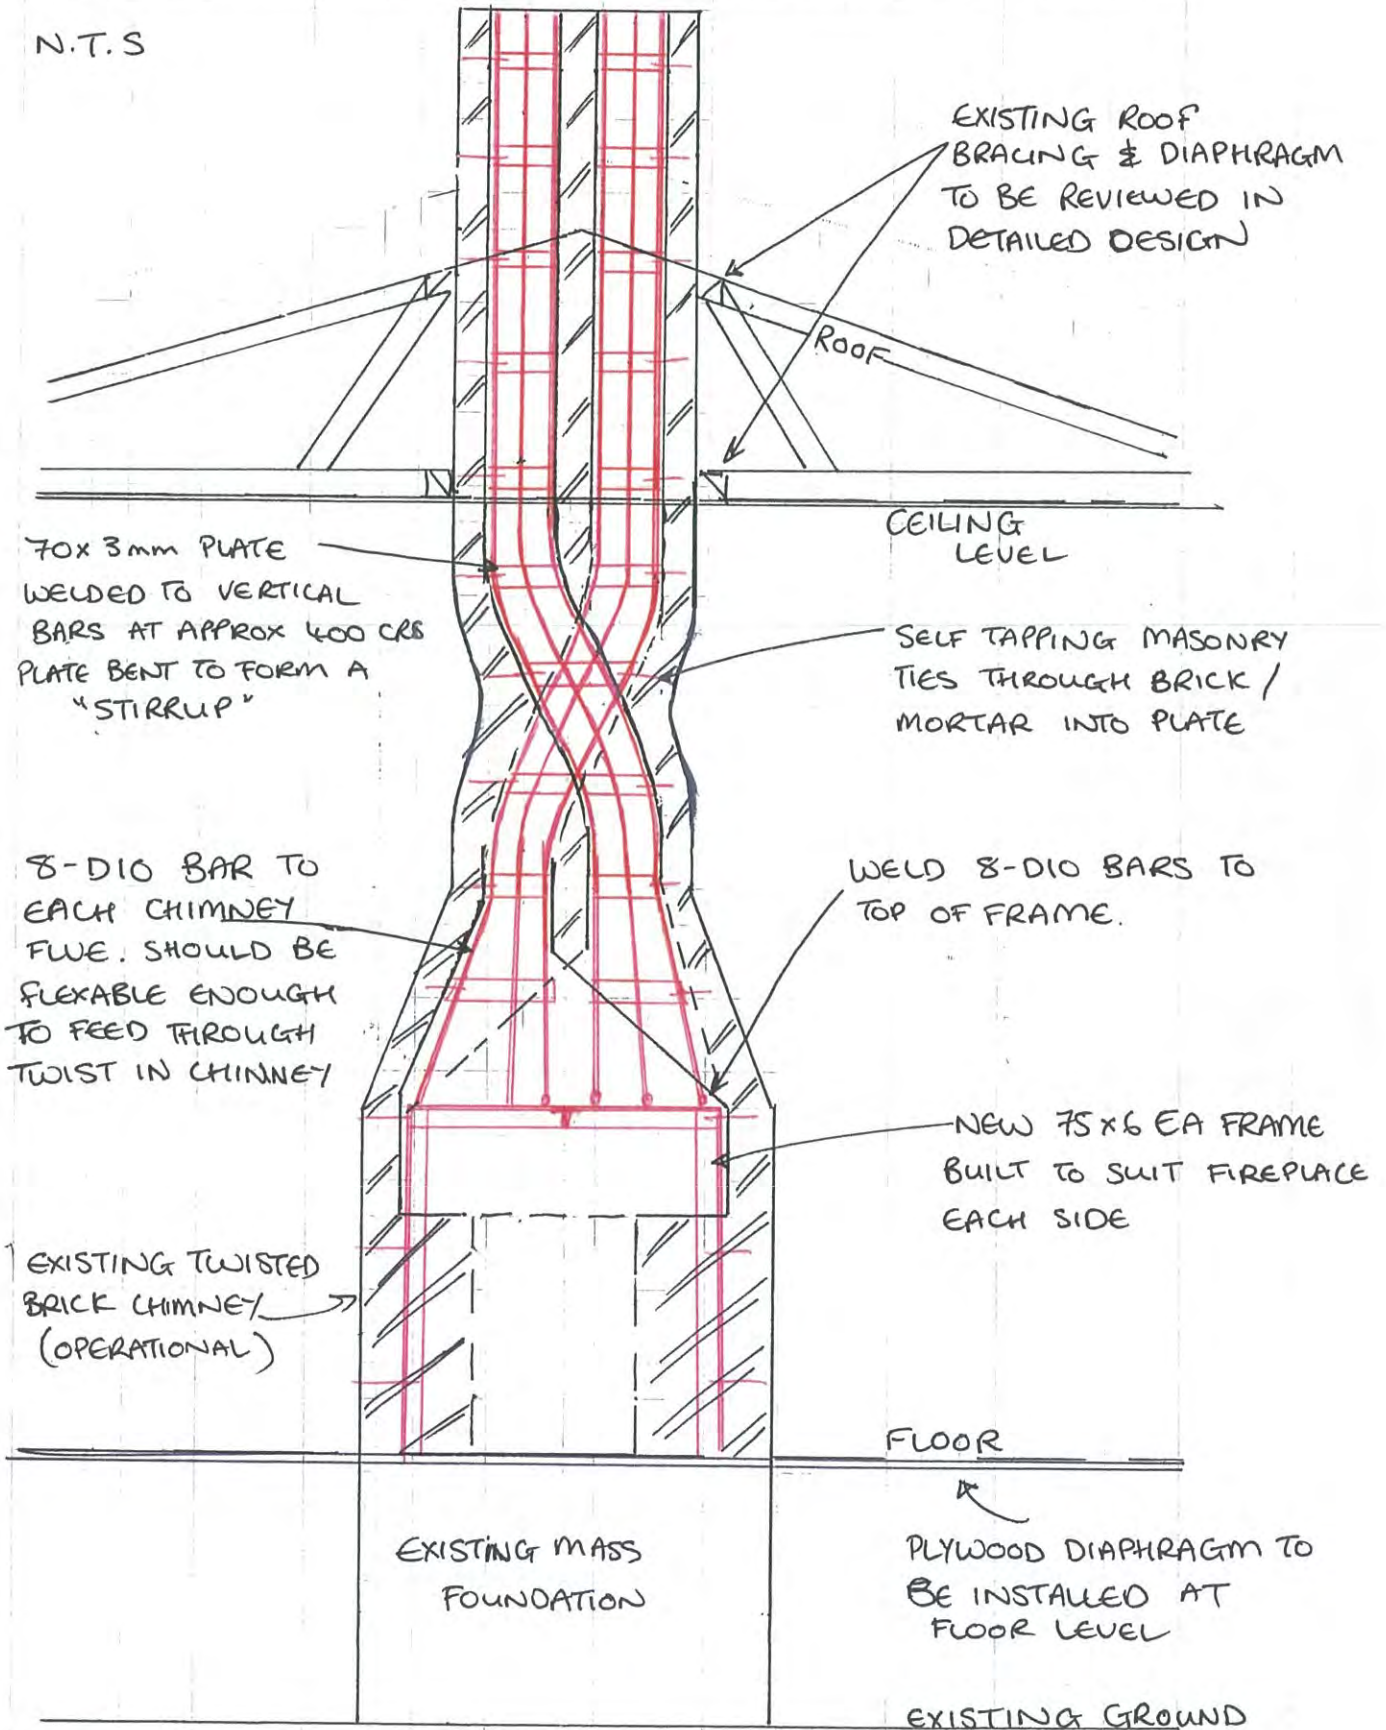 N.T.S
EXISTING ROOF
BRACING & DIAPHRAGM
TO BE REVIEWED IN
DETAILED DESIGN
ROOF
CEILING
LEVEL
70x3mm PLATE
WELDED TO VERTICAL
BARS AT APPROX 400 CRS
PLATE BENT TO FORM A
"STIRRUP"
SELF TAPPING MASONRY
TIES THROUGH BRICK /
MORTAR INTO PLATE
8-D10 BAR TO
EACH CHIMNEY
FLUE. SHOULD BE
FLEXABLE ENOUGH
TO FEED THROUGH
TWIST IN CHINNEY
WELD 8-D10 BARS TO
TOP OF FRAME.
NEW 75x6 EA FRAME
BUILT TO SUIT FIREPLACE
EACH SIDE
EXISTING TWISTED
BRICK CHIMNEY
(OPERATIONAL)
FLOOR
EXISTING MASS
FOUNDATION
PLYWOOD DIAPHRAGM TO
BE INSTALLED AT
FLOOR LEVEL
EXISTING GROUND